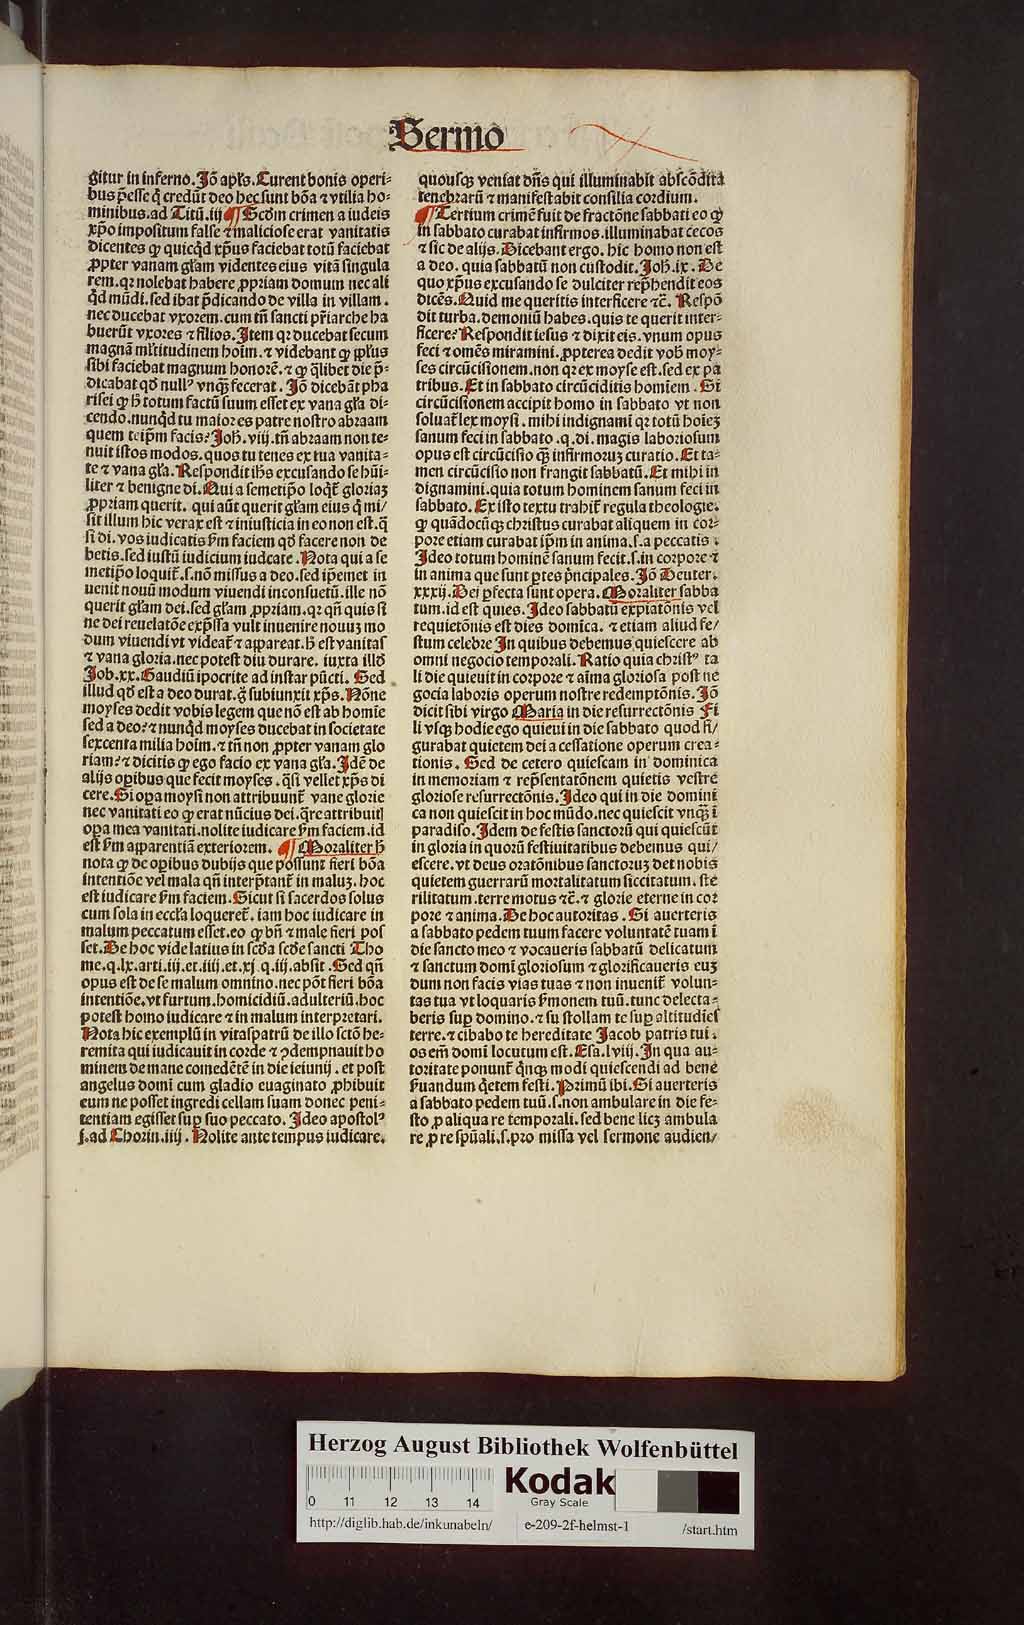 Sermo
gitur in inferno. Jõ apl's. Curent bonis operi-
bus p̄esse q̇ credũt deo hec sunt bõa ⁊ vtilia ho-
minibus. ad Titũ. iij ¶ Scďm crimen a iudeis
xp̄o impositum false ⁊ maliciose erat vanitatis
dicentes ꝙ quicq̇d xp̄us faciebat totũ faciebat
ꝓpter vanam gl'am videntes eius vitã singula
rem. qꝛ nolebat habere ꝓpriam domum nec ali
q̇d mũdi. sed ibat p̄dicando de villa in villam.
nec ducebat vxorem. cum tñ sancti pr̄iarche ha
buerũt vxores ⁊ filios. Item qꝛ ducebat secum
magnã ml'titudinem hoim̃. ⁊ videbant ꝙ ipsus
sibi faciebat magnum honorẽ. ⁊ ꝙ q̇libet die p̄-
dicabat qď nullꝰ vnqꝫ fecerat. Jõ dicebãt pha
risei ꝙ h̄ totum factũ suum esset ex vana gl'a di-
cendo. nunq̇d tu maior es patre nostro abraam
quem teip̄m facis? Joh̄. viij. tñ abraam non te-
nuit istos modos. quos tu tenes ex tua vanita-
te ⁊ vana gl'a. Respondit ih̄s excusando se hũi-
liter ⁊ benigne di. Qui a semetip̄o loq̇t̃ gloriaꝫ
ꝓpriam querit. qui aũt querit gl'am eius q̇ mi/
sit illum hic verax est ⁊ iniusticia in eo non est. q̃
si di. vos iudicatis ẜm faciem qď facere non de
betis. sed iustũ iudicium iudcate. Nota qui a se
metip̄o loquit̃. s. nõ missus a deo. sed ip̄emet in
uenit nouũ modum viuendi inconsuetũ. ille nõ
querit gl'am dei. sed gl'am ꝓpriam. qꝛ qñ quis si
ne dei reuelatõe exp̄ssa vult inuenire nouuꝫ mo
dum viuendi vt videat̃ ⁊ appareat. h̄ est vanitas
⁊ vana gloria. nec potest diu durare. iuxta illď
Job. xx. Gaudiũ ipocrite ad instar pũcti. Sed
illud qď est a deo durat. q̃ subiunxit xp̄s. Nõne
moyses dedit vobis legem que nõ est ab homĩe
sed a deo? ⁊ nunq̇d moyses ducebat in societate
sexcenta milia hoim̃. ⁊ tñ non ꝓpter vanam glo
riam? ⁊ dicitis ꝙ ego facio ex vana gl'a. Idẽ de
alijs opibus que fecit moyses. q̃si vellet xp̄s di
cere. Si oꝑa moysi non attribuunt̃ vane glorie
nec vanitati eo ꝙ erat nũcius dei. q̃re attribuit|
oꝑa mea vanitati. nolite iudicare ẜm faciem. id
est ẜm apparentiã exteriorem. ¶ Moraliter h̄
nota ꝙ de oꝑibus dubijs que possunt fieri bõa
intentiõe vel mala qñ interp̄tant̃ in maluꝫ. hoc
est iudicare ẜm faciem. Sicut si sacerdos solus
cum sola in eccl'ia loqueret̃. iam hoc iudicare in
malum peccatum esset. eo ꝙ bñ ⁊ male fieri pos
set. De hoc vide latius in scďa scďe sancti Tho
me. q. lx. arti. iij. et. iiij. et. xj. q. iij. absit. Sed qñ
opus est de se malum omnino. nec põt fieri bõa
intentiõe. vt furtum. homicidiũ. adulteriũ. hoc
potest homo iudicare ⁊ in malum interpretari.
Nota hic exemplũ in vitaspatrũ de illo sctõ he-
remita qui iudicauit in corde ⁊ ꝯdempnauit ho
minem de mane comedẽtẽ in die ieiunij. et post
angelus domĩ cum gladio euaginato ꝓhibuit
eum ne posset ingredi cellam suam donec peni-
tentiam egisset suꝑ suo peccato. Ideo apostolꝰ
j. ad Chorin. iiij. Nolite ante tempus iudicare.
quousqꝫ veniat dñs qui illuminabit abscõdita
tenebrarũ ⁊ manifestabit consilia cordium.
¶ Tertium crimẽ fuit de fractõne sabbati eo ꝙ
in sabbato curabat infirmos. illuminabat cecos
⁊ sic de alijs. Dicebant ergo. hic homo non est
a deo. quia sabbatũ non custodit. Joh̄. ix. De
quo xp̄us excusando se dulciter rep̄hendit eos
dicẽs. Quid me queritis interficere ⁊c̃. Respõ
dit turba. demoniũ habes. quis te querit inter-
ficere? Respondit iesus ⁊ dixit eis. vnum opus
feci ⁊ omẽs miramini. ꝓpterea dedit vob̄ moy-
ses circũcisionem. non qꝛ ex moyse est. sed ex pa
tribus. Et in sabbato circũciditis homĩem. Si
circũcisionem accipit homo in sabbato vt non
soluat̃ lex moysi. mihi indignami qꝛ totũ hoieꝫ
sanum feci in sabbato. q. di. magis laboriosum
opus est circũcisio qꝫ infirmoꝝ curatio. Et ta-
men circũcisio non frangit sabbatũ. Et mihi in
dignamini. quia totum hominem sanum feci in
sabbato. Ex isto textu trahit̃ regula theologie.
ꝙ quãdocũqꝫ christus curabat aliquem in cor-
pore etiam curabat ip̄m in anima. s. a peccatis.
Ideo totum hominẽ sanum fecit. s. in corpore ⁊
in anima que sunt ꝑtes p̄ncipales. Jõ Deuter.
xxxij. Dei ꝑfecta sunt opera. Moraliter sabba
tum. id est quies. Ideo sabbatũ expiatõnis vel
requietõnis est dies domĩca. ⁊ etiam aliud fe/
stum celebre In quibus debemus quiescere ab
omni negocio temporali. Ratio quia christꝰ ta
li die quieuit in corpore ⁊ aĩma gloriosa post ne
gocia laboris operum nostre redemptõnis. Jõ
dicit sibi virgo Maria in die resurrectõnis Fi
li vsqꝫ hodie ego quieui in die sabbato quod fi/
gurabat quietem dei a cessatione operum crea-
tionis. Sed de cetero quiescam in dominica
in memoriam ⁊ rep̄sentatõnem quietis vestre
gloriose resurrectõnis. Ideo qui in die domini
ca non quiescit in hoc mũdo. nec quiescit vnqꝫ ĩ
paradiso. Idem de festis sanctorũ qui quiescũt
in gloria in quorũ festiuitatibus debemus qui/
escere. vt deus oratõnibus sanctoruꝫ det nobis
quietem guerrarũ mortalitatum siccitatum. ste
rilitatum. terre motus ⁊c̃. ⁊ glorie eterne in cor
pore ⁊ anima. De hoc autoritas. Si auerteris
a sabbato pedem tuum facere voluntatẽ tuam ĩ
die sancto meo ⁊ vocaueris sabbatũ delicatum
⁊ sanctum domĩ gloriosum ⁊ glorificaueris euꝫ
dum non facis vias tuas ⁊ non inuenit̃ volun-
tas tua vt loquaris ẜmonem tuũ. tunc delecta-
beris suꝑ domino. ⁊ sustollam te suꝑ altitudies
terre. ⁊ cibabo te hereditate Jacob patris tui.
os em̃ domĩ locutum est. Esa. lviij. In qua au-
toritate ponunt̃ q̇nqꝫ modi quiescendi ad bene
ẜuandum q̇etem festi. Primũ ibi. Si auerteris
a sabbato pedem tuũ. s. non ambulare in die fe-
sto ꝓ aliqua re temporali. sed bene licꝫ ambula
re ꝓ re sp̄uali. s. pro missa vel sermone audien/
Herzog August Bibliothek Wolfenbüttel
Kodak
Gray Scale
0 11 12 13 14
http://diglib.hab.de/inkunabeln/ e-209-2f-helmst-1 /start.htm